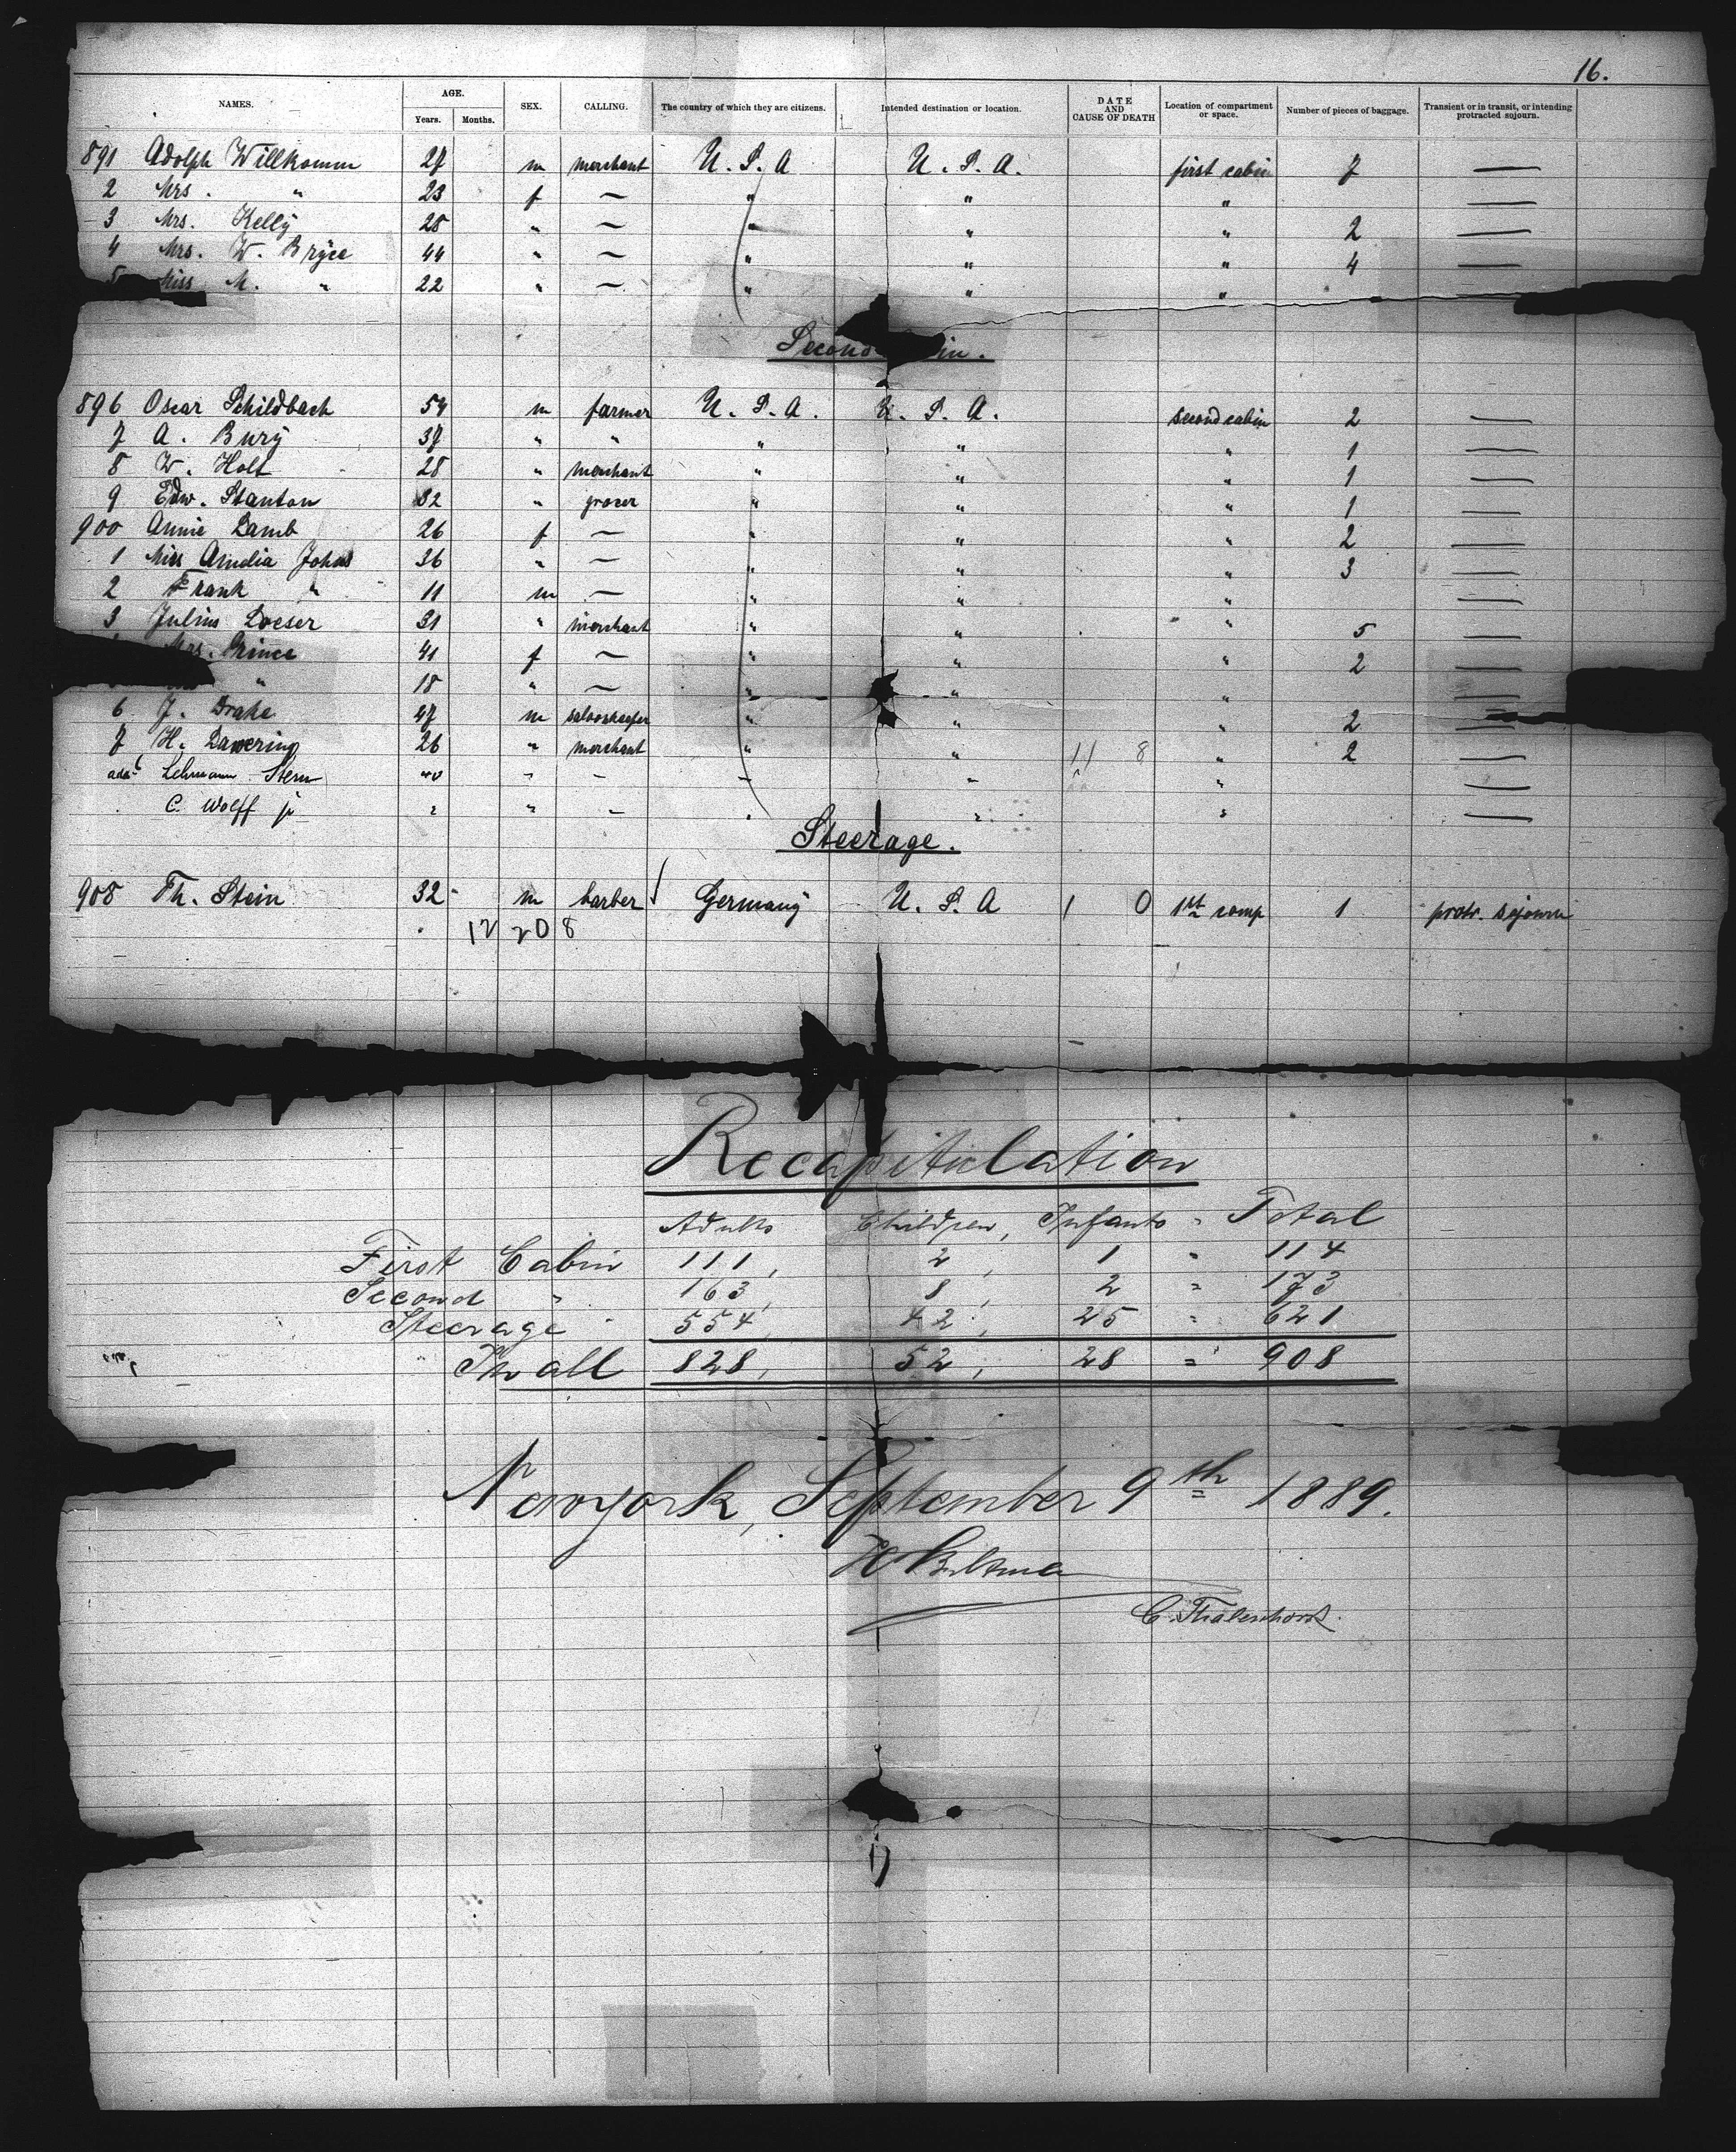 16.
NAMES. AGE. Years. Months. SEX. CALLING. The country of which they are citizens. Intended destination or location. DATE AND CAUSE OF DEATH Location of compartment or space. Number of pieces of baggage. Transient or in transit, or intending protracted sojourn.
891 Adolph Willkomm 27 m merchant U. S. A U. S. A. first cabin 7 —
2 Mrs. " 23 f — " " " —
3 Mrs. Kelly 28 " — " " " 2 —
4 Mrs. W. Bryce 44 " — " " " 4 —
5 Miss M. " 22 " — " " "
Second in.
896 Oscar Schildbach 54 m farmer U. S. A. U. S. A. second cabin 2 —
7 A. Bury 37 " " " " " 1 —
8 W. Holt 28 " merchant " " " 1 —
9 Edw. Stanton 32 " grocer " " " 1 —
900 Annie Lamb 26 f — " " " 2 —
1 Miss Amelia Johns 36 " — " " " 3 —
2 Frank " 11 m — " " " —
3 Julius Loeser 31 " merchant " " " 5 —
Mrs. Prince 41 f — " " " 2 —
" 18 " — " " " —
6 J. Drake 47 m saloonkeeper " " " 2 —
7 H. 26 " merchant " " 11 8 " 2 —
Lehmann Stern " - - " " —
C. Wolff jr " " - " " " —
Steerage.
908 Th. Stein 32 m barber Germany U. S. A 1 0 1st comp 1 protr. sojourn
12 20 8
Recapitulation
Adults Children, Infants = Total
First Cabin 111, 2, 1 = 114
Second " 163, 8, 2 = 173
Steerage 554, 42, 25 = 621
In all 828, 52, 28 = 908
Newyork, September 9th 1889.
C. Thalenhorst